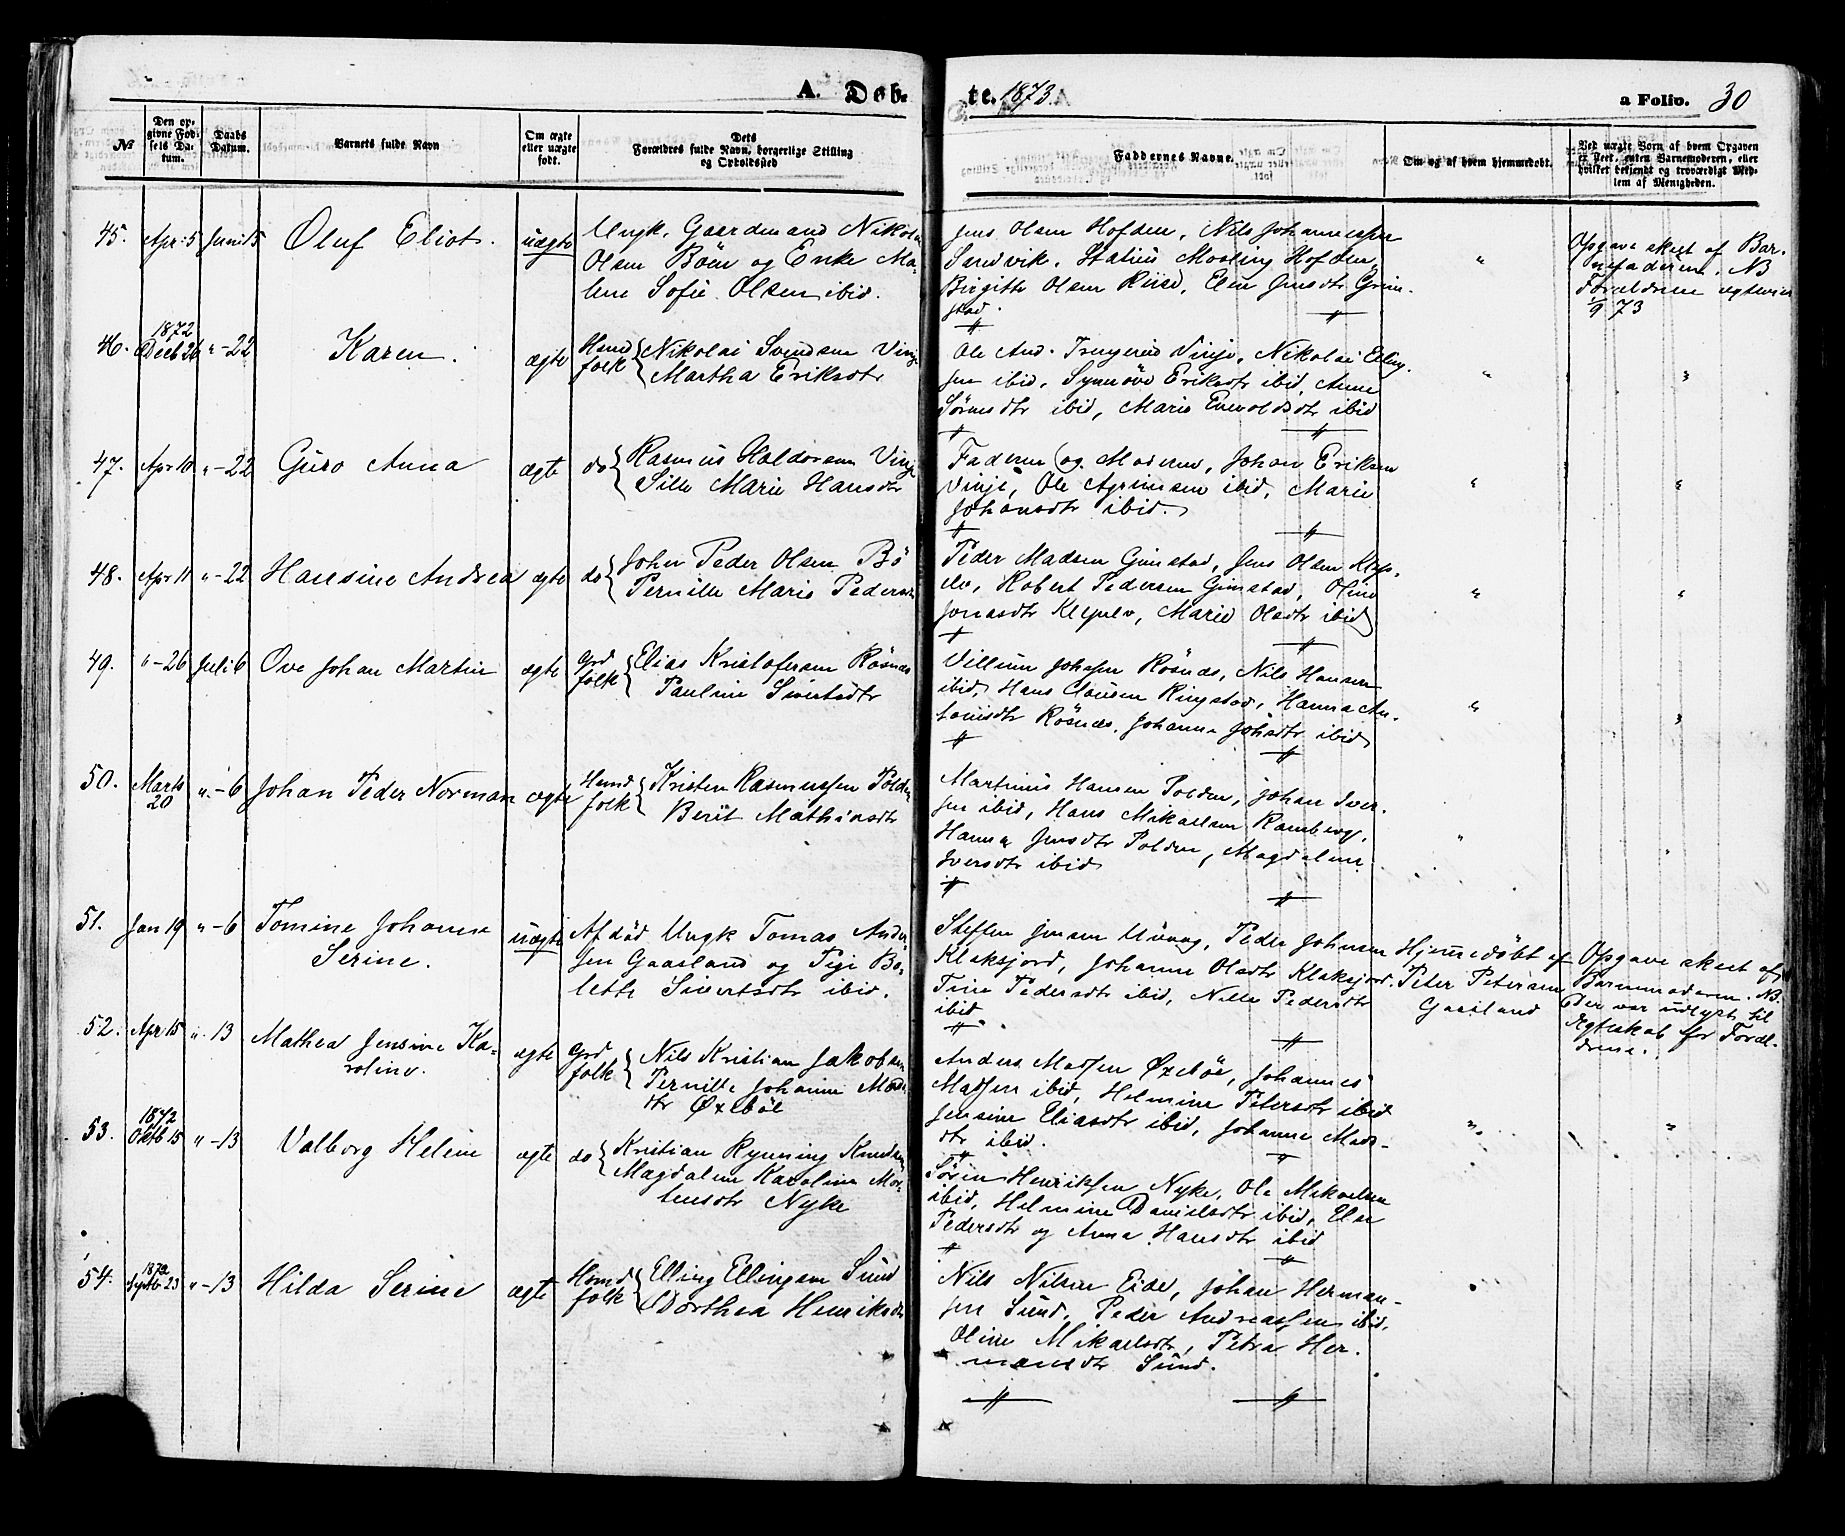 A. Døb-
te. 1873.
a Folio. 30
№
Den op-
givne Fød-
sels Da-
tum.
Daabs
Datum.
Barnets fulde Navn
Om ægte
eller uægte
født.
Dets
Forældres fulde Navn, borgerlige Stilling
og Opholdssted
Faddernes Navne.
Om og af hvem hjemmedøbt.
Ved uægte Børn af hvem Opgaven
er skeet, enten Barnemoderen, eller
hvilket bekjendt og troværdigt Med-
lem af Menigheden.
45. Apr: 5 Juni 15 Oluf Eliot. uægte
Ungk. Gaardmand Nikolai
Olsen Böen og Enke Ma-
lene Sofie Olsen ibid.
Jens Olsen Hofden, Nils Johannessen
Sandvik, Statius Mosling Hofden,
Birgitte Olsen Riise, Elen Jensdtr Grim-
stad.
"
Opgave skeet af Bar-
nefaderen. NB
Forældrene egteviet
1/9 73
46. 1872 Decb 26 " - 22 Karen. ægte
Husmd folk
Nikolai Svendsen Vinje
Martha Eriksdtr
Ole And. Vinje, Nikolai Elling-
sen ibid, Synnöve Eriksdtr ibid, Anne
Sörensdtr ibid, Marie Evvoldsdtr ibid
" "
47. Apr 10 " - 22 Guro Anna ægte do
Rasmus Haldorsen Vinje
Sille Marie Hansdtr
Faderen og Moderen, Johan Eriksen
Vinje, Ole Agrimsen ibid, Marie
Johansdtr ibid.
" "
48. Apr 11 " - 22 Hansine Andrea ægte do
John Peder Olsen Bö
Pernille Marie Pedersdtr
Peder Madsen Gimstad, Jens Olsen Klep-
elv, Robert Pedersen Gimstad, Oline
Jonasdtr Klepelv, Marie Olsdtr ibid
" "
49. " - 26 Juli 6 Ove Johan Martin ægte
Grd folk
Elias Kristofersen Rösnæs
Pauline Sivertsdtr
Villum Johnsen Rösnæs, Nils Hansen
ibid, Hans Clausen Ringstad, Hanna An-
tonisdtr Rösnæs, Johanna Johsdtr ibid
" "
50. Marts 20 " - 6 Johan Peder Norman ægte
Husmd folk
Kristen Rasmussen Polden
Berit Mathiasdtr
Martinus Hansen Polden, Johan Iver-
sen ibid, Hans Mikaelsen Ramberg,
Hanna Jensdtr Polden, Magdalene
Iversdtr ibid
" "
51. Jan 19 " - 6 Tomine Johanna
Serine. uægte
Afdöd Ungk Tomas Ander-
sen Gaasland og Pige Bo-
lette Sivertsdtr ibid.
Steffen Jensen Uvaag, Peder Johnsen
Klaksjord, Johanne Olsdtr Klaksjord.
Tine Pedersdtr ibid, Nille Pedersdtr
ibid.
Hjemmedöbt af
Peter Petersen
Gaasland
Opgave skeet af
Barnemoderen. NB.
Der var udlyst til
Ægteskab for Foræl-
drene.
52. Apr 15 " - 13 Mathea Jensine Ka-
roline. ægte
Grd folk
Nils Kristian Jakobsen
Pernille Johanne Mads-
dtr Öxebøe
Anders Madsen Öxeböe, Johannes
Madsen ibid, Helmine Petersdtr ibid
Jensine Eliasdtr ibid, Johanne Mads-
dtr ibid.
" "
53. 1872 Oktb 15 " - 13 Valborg Helene ægte do
Kristian Rynning Knudsen
Magdalene Karoline Mor-
tensdtr Nyke
Sören Henriksen Nyke, Ole Mikaelsen
ibid, Helmine Danielsdtr ibid, Else
Pedersdtr og Anna Hansdtr ibid
54. 1872 Septbr 23 " - 13 Hilda Serine ægte
Husmd folk
Elling Ellingsen Sund
Dorthea Henriksdtr
Nils Nilsen Eide, Johan Herman-
sen Sund, Peder Andreassen ibid,
Oline Mikaelsdtr, Petra Her-
mansdtr Sund.